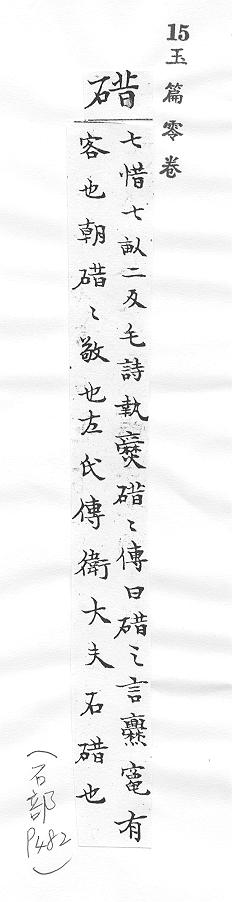 15 玉篇零卷
碏
七惜七畝二反毛詩執爨碏〻傳曰碏之言爨竈有
客也朝碏〻敬也左氏傳衛大夫石碏也
(石部 P482)